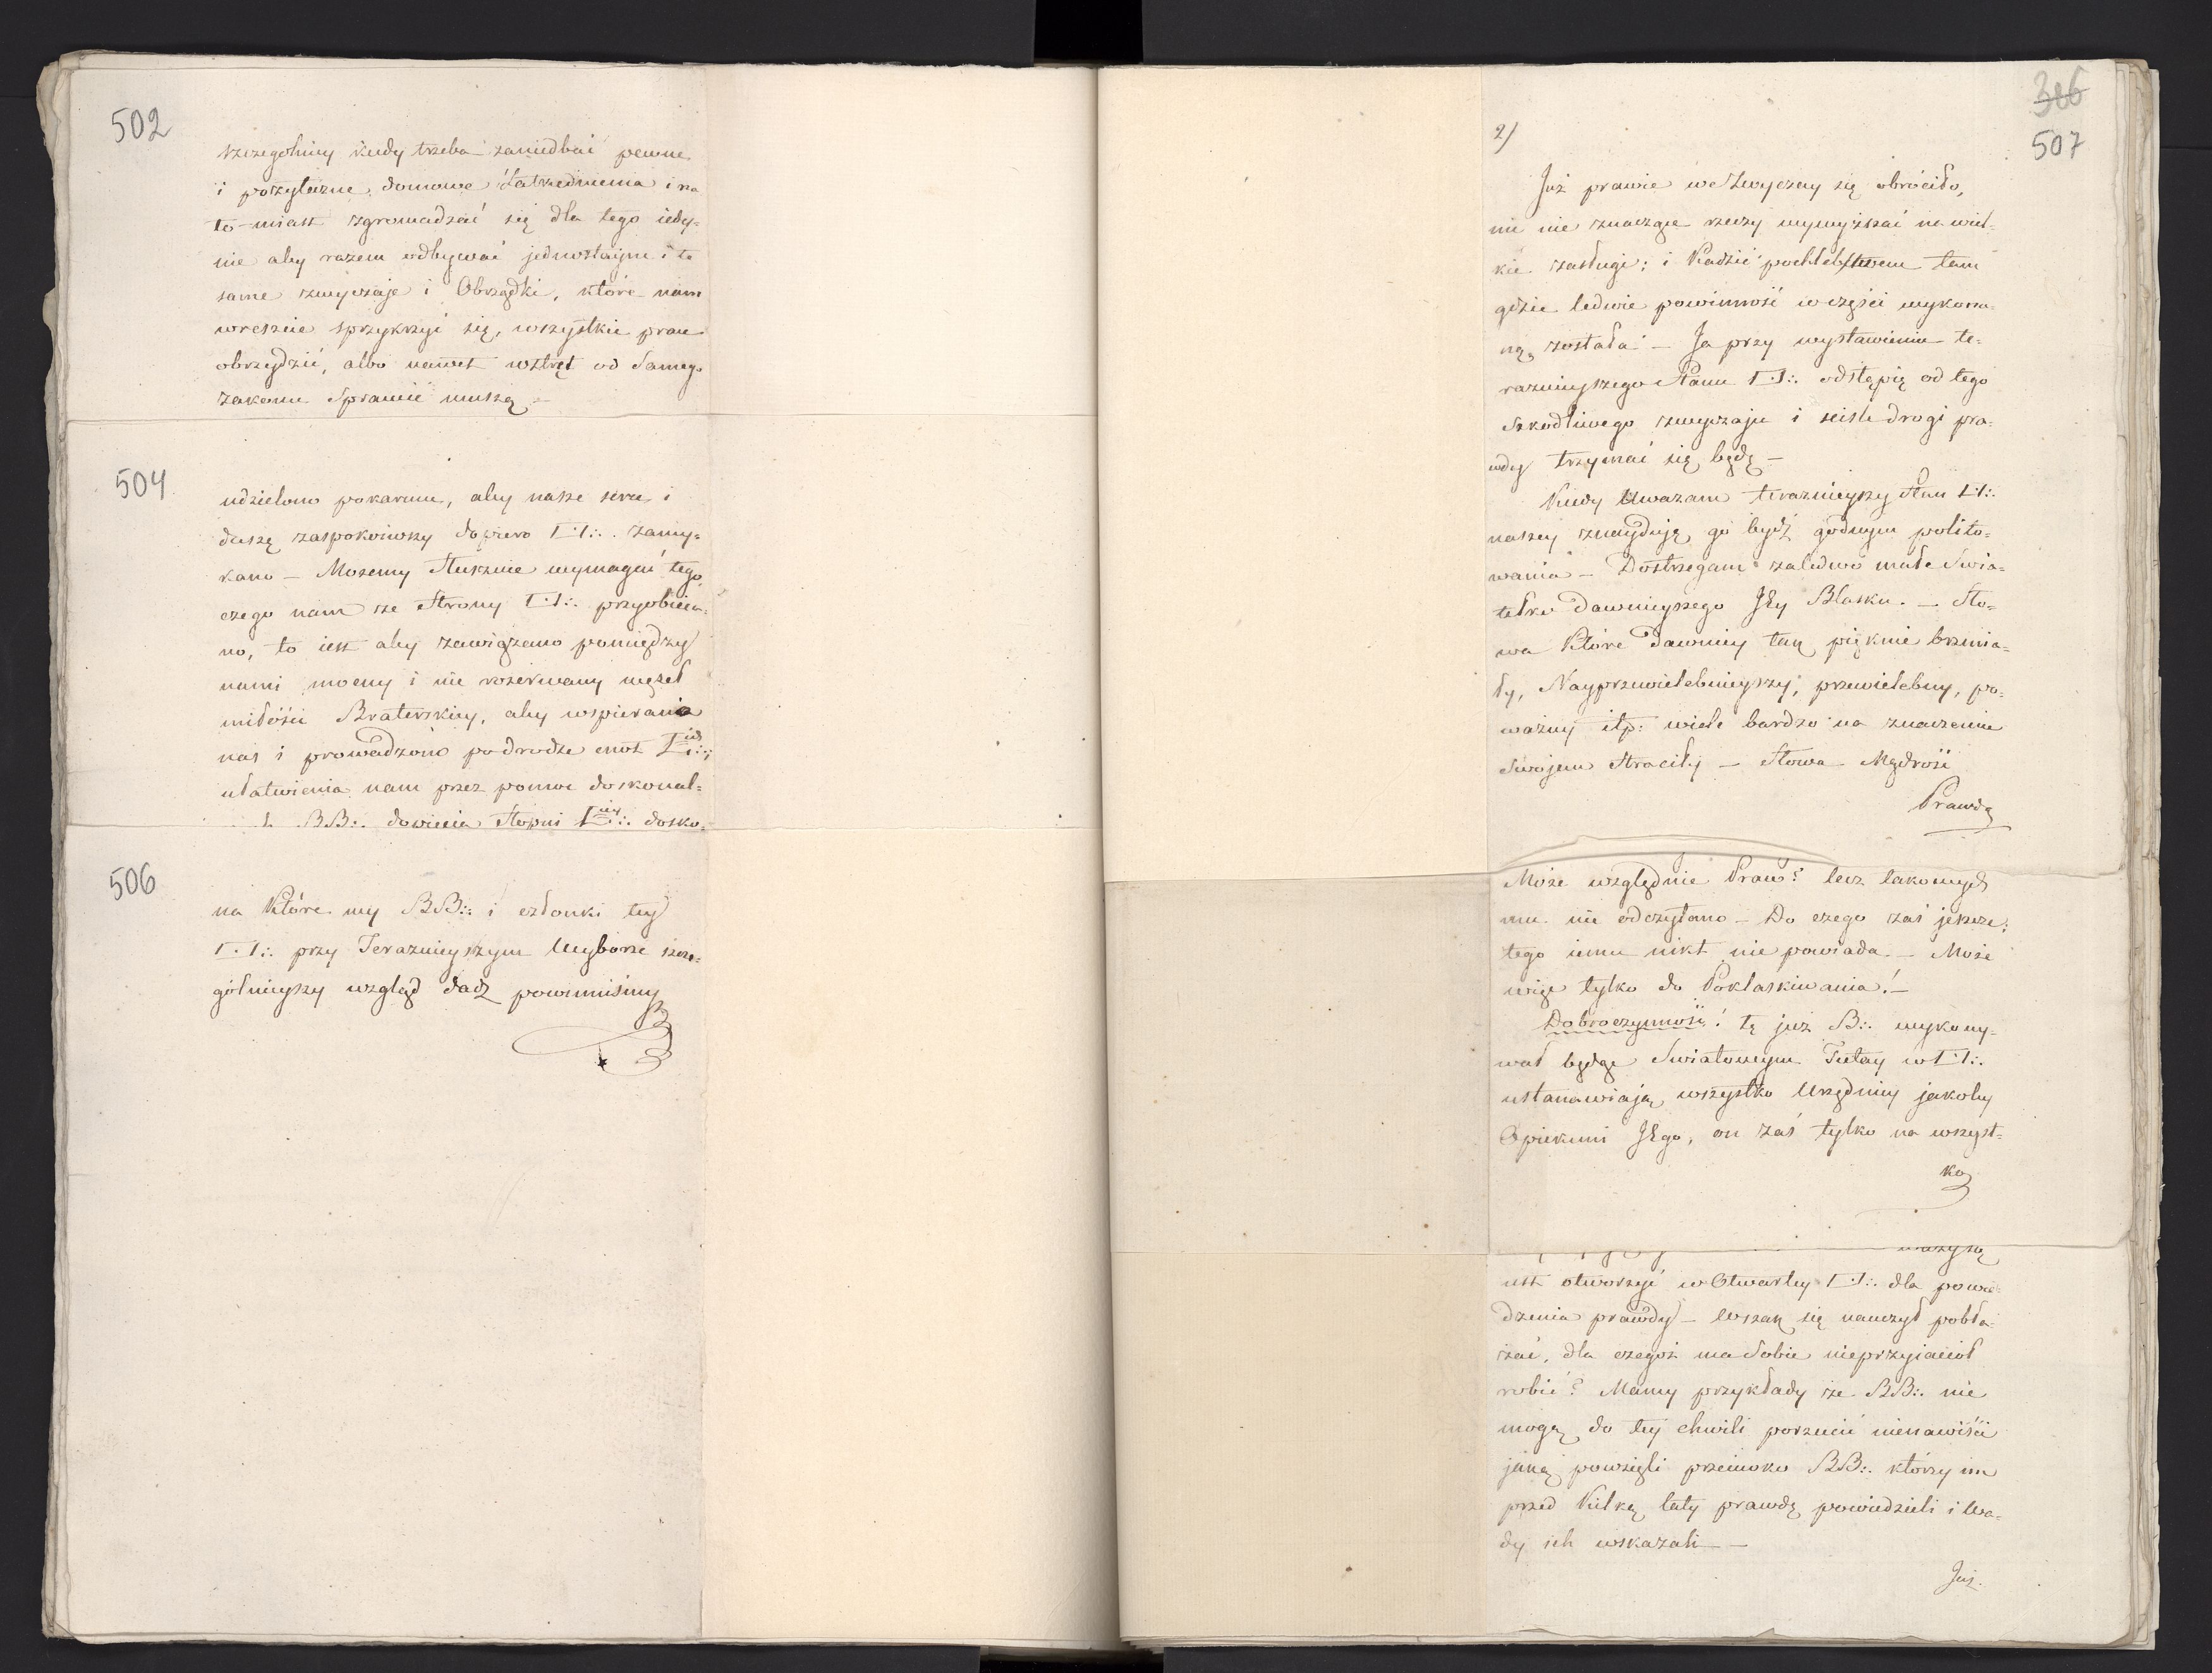 502
szczegolniey kiedy trzeba zaniedbać pewne
i pożyteczne domowe Zatrudnienia i na
to-miast zgromadzać się dla tego iedy=
nie aby razem odbywać jednostajne i te
same zwyczaje i Obrządki, które nam
wreszcie sprzykrzyć się, wszystkie prace
obrzydzić, albo nawet wstręt od Samego
zakonu Sprawić muszą —
504
udzielono pokarmu, aby nasze serce i
duszę zaspokoiwszy dopiero □∴ zamy=
kano — Mozemy słusznie wymagać tego
czego nam ze strony □∴ przyobieca=
no, to iest aby zawiązano pomiędzy
nami mocny i nie rozerwany węzeł
miłości Braterskiey, aby wspierano
nas i prowadzono po drodze cnot
ułatwienia nam przez pomoc doskonal=
BB∴ dowcia stopni dosko=
506
na Które my BB∴ i członki tey
□∴ przy Terazniejszym Wyborze szcze=
gólnieyszy wzgląd dadź powinniśmy
306
507
2)
Już prawie we Zwyczay się obróciło,
mi nie znaczące rzeczy wywyższać na wiel=
kie zasługi; i Kadzić pochlebstwem tam
gdzie ledwie powinność w części wykona=
ną została — Ja przy wystawieniu te=
raznieyszego Stanu □∴ odstąpię od tego
szkodliwego zwyczaju i ściśle drogi pra=
wdy trzymać się będę —
Kiedy Uwazam teraznieyszy stan □∴
naszey znayduję go bydź godnym polito=
wania — Dostrzegam zaledwo małe Swia=
tełko dawnieyszego Jey Blasku. — Sło=
wa Które Dawniey tak pięknie brzmia=
ły, Nayprzewielebnieyszy, przewielebny, po=
ważny itp: wiele bardzo na znaczeniu
Swojem straciły — Słowa Mądrość
Prawda
Może względnie Praw? lecz takowych
mu nie odczytano — Do czego zaś jeszcze;
tego iemu nikt nie powiada — Może
więc tylko do Poklaskiwania! —
Dobroczynność! tę już B∴ wykony=
wał będąc Swiatowym Tutay w □∴
ustanawiają wszystko Urzędnicy jakoby
Opiekuni Jego, on zaś tylko na wszyst=
ko
ust otworzyć w Otwartey □∴ dla powie=
dzenia prawdy — Wszak się nauczył pobła=
zać, dla czegoż ma Sobie nieprzyiaciół
robić? Mamy przykłady ze BB∴ nie
mogą do tey chwili porzucić nienawiści
jaką powzięli przeciwko BB∴ którzy im
przed Kilką laty prawdę powiedzieli i wa=
dy ich wskazali —
Już.